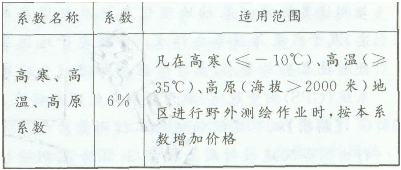 系数名称 系数 适用范围
凡在高寒(≤-10℃)、高温(≥
高寒、高
35℃)、高原(海拔>2000 米)地
温、高原 6%
区进行野外测绘作业时,按本系
系数
数增加价格